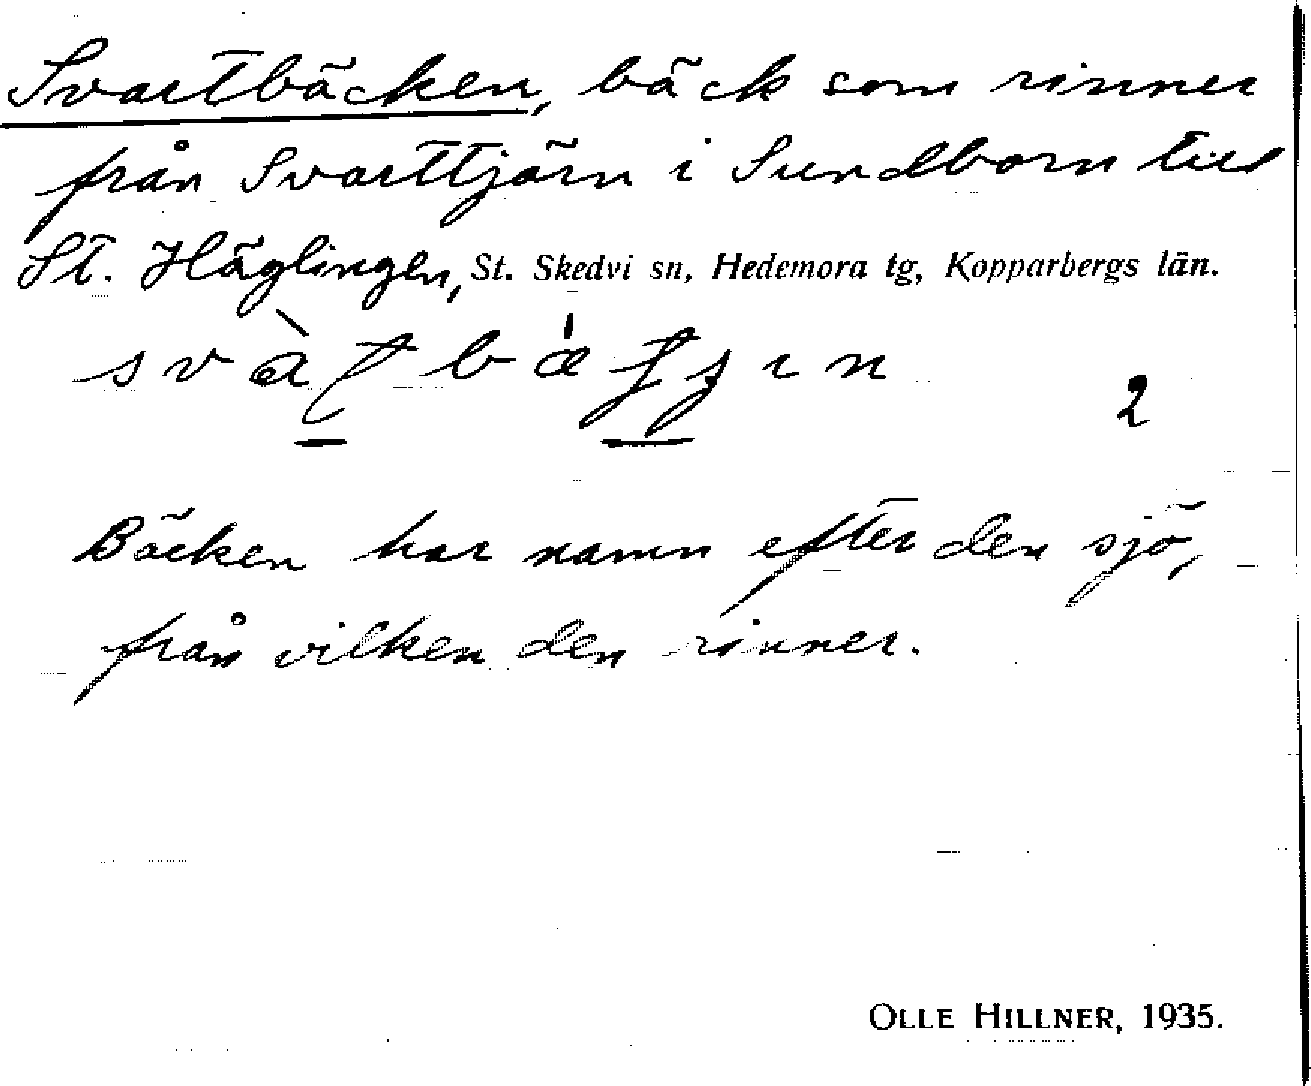 Svartbäcken, bäck som rinner
från Svarttjärn i Sundborn till
St. Häglingen, St. Skedvi sn, Hedemora tg, Kopparbergs län.
2
Bäcken har namn efter den sjö,
från vilken den rinner.
OLLE HILLNER, 1935.